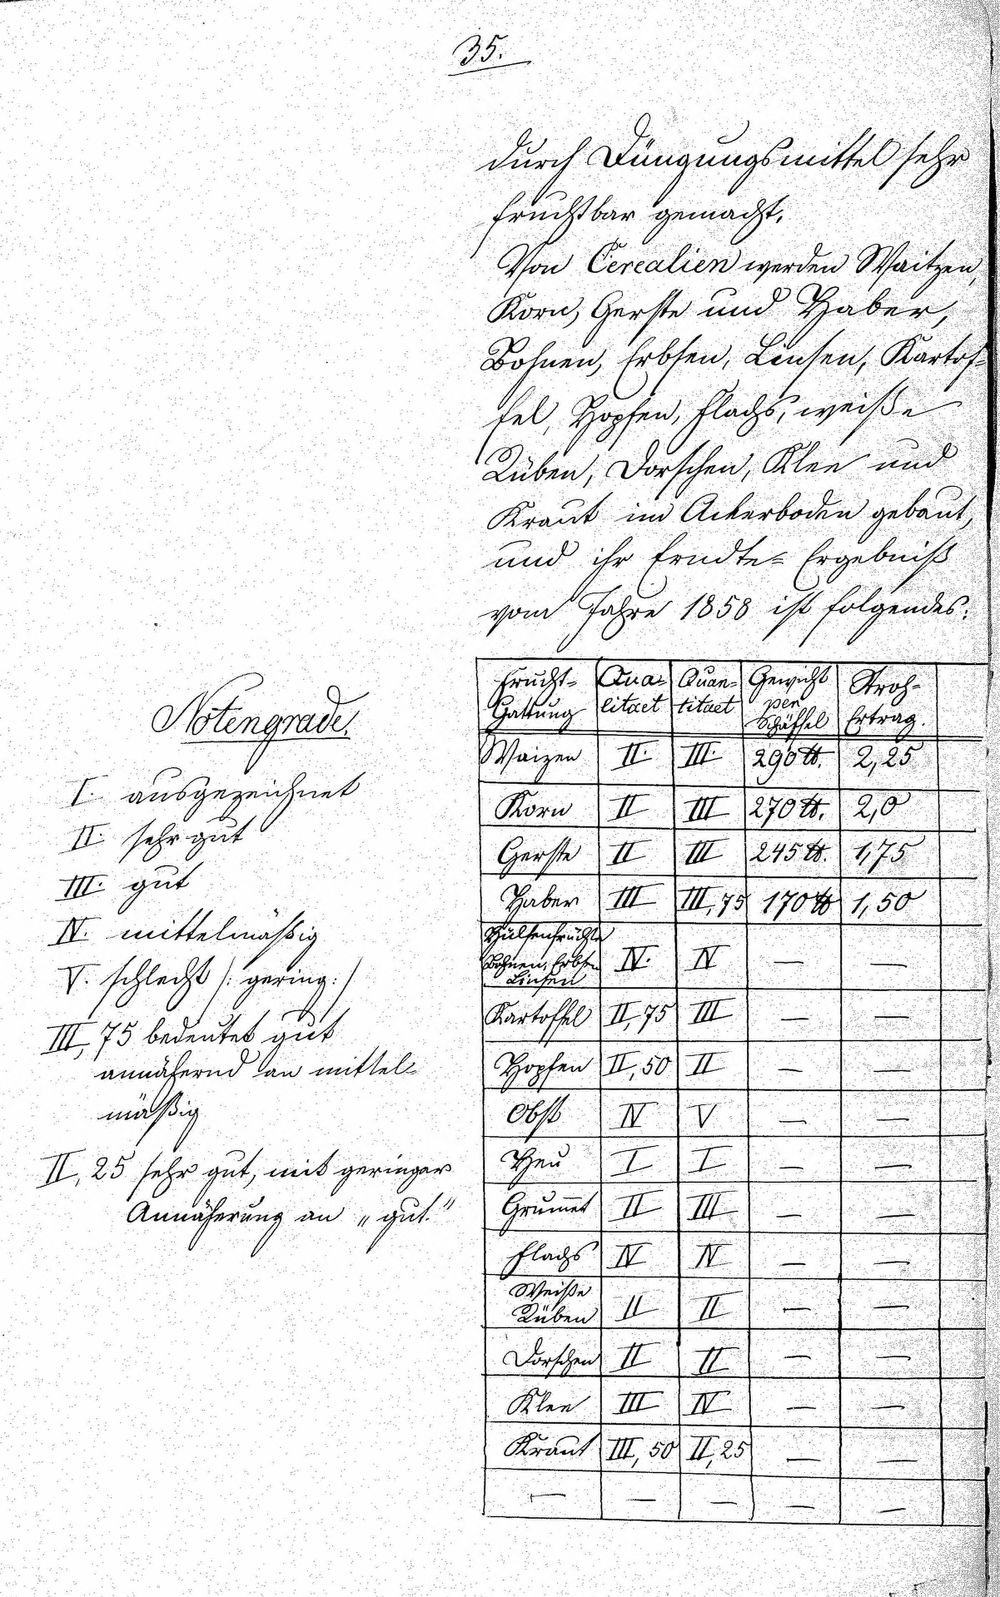 35.
durch Düngungsmittel sehr
fruchtbar gemacht.
Von Cerealien werden Waitzen,
Korn, Gerste und Haber,
Bohnen, Erbsen, Linsen, Kartof-
fel, Hopfen, Flachs, weiße
Rüben, Dorschen, Klee und
Kraut im Ackerboden gebaut,
und ihr Erndte-Ergebniß
vom Jahre 1858 ist folgendes:
Notengrade.
I. ausgezeichnet
II. sehr gut
III. gut
IV. mittelmäßig
V. schlecht /: gering :/
III,75 bedeutet gut
annähernd an mittel-
mäßig
II,25 sehr gut, mit geringer
Annäherung an „gut."
Frucht-Gattung Qua-litaet Quan-titaet Gewicht per Schäffel Stroh-Ertrag.
Waizen II. III. 290 ℔. 2,25
Korn II III 270 ℔. 2,0
Gerste II III 245 ℔. 1,75
Haber III III,75 170 ℔ 1,50
Hülsenfrüchte
Bohnen, Erbsen IV. IV — —
Linsen
Kartoffel II,75 III — —
Hopfen II,50 II — —
Obst IV V — —
Heu I I — —
Grum̅et II III — —
Flachs IV IV — —
Weiße
Rüben II II — —
Dorschen II II — —
Klee III IV — —
Kraut III,50 II,25 — —
— — — — —